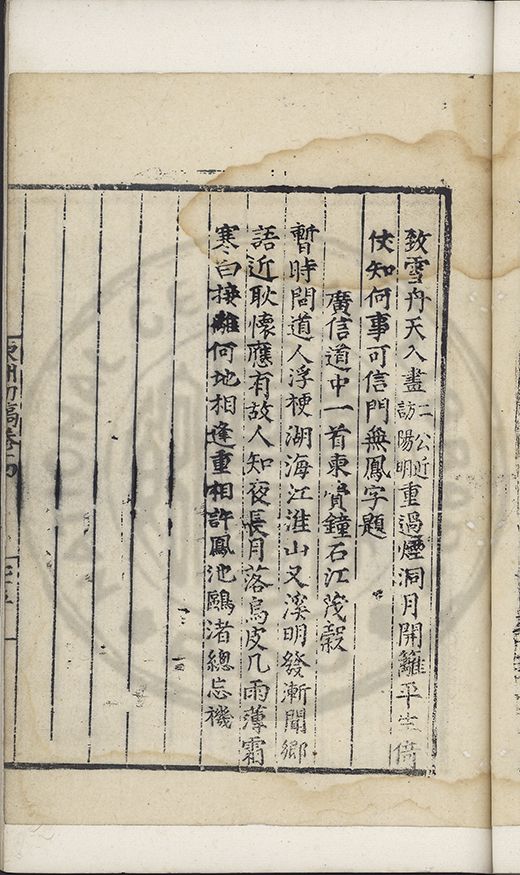 致雪舟天入畫二公近訪陽明重過煙洞月開籬平生倚
仗知何事可信門無鳳字題
廣信道中一首東費鐘石江茂穀
暫時問道人浮梗湖海江淮山又溪明發漸聞鄉
語近耿懷應有故人知夜長月落烏皮几雨薄霜
寒白接離何地相逢重相許鳳池鷗渚總忘機